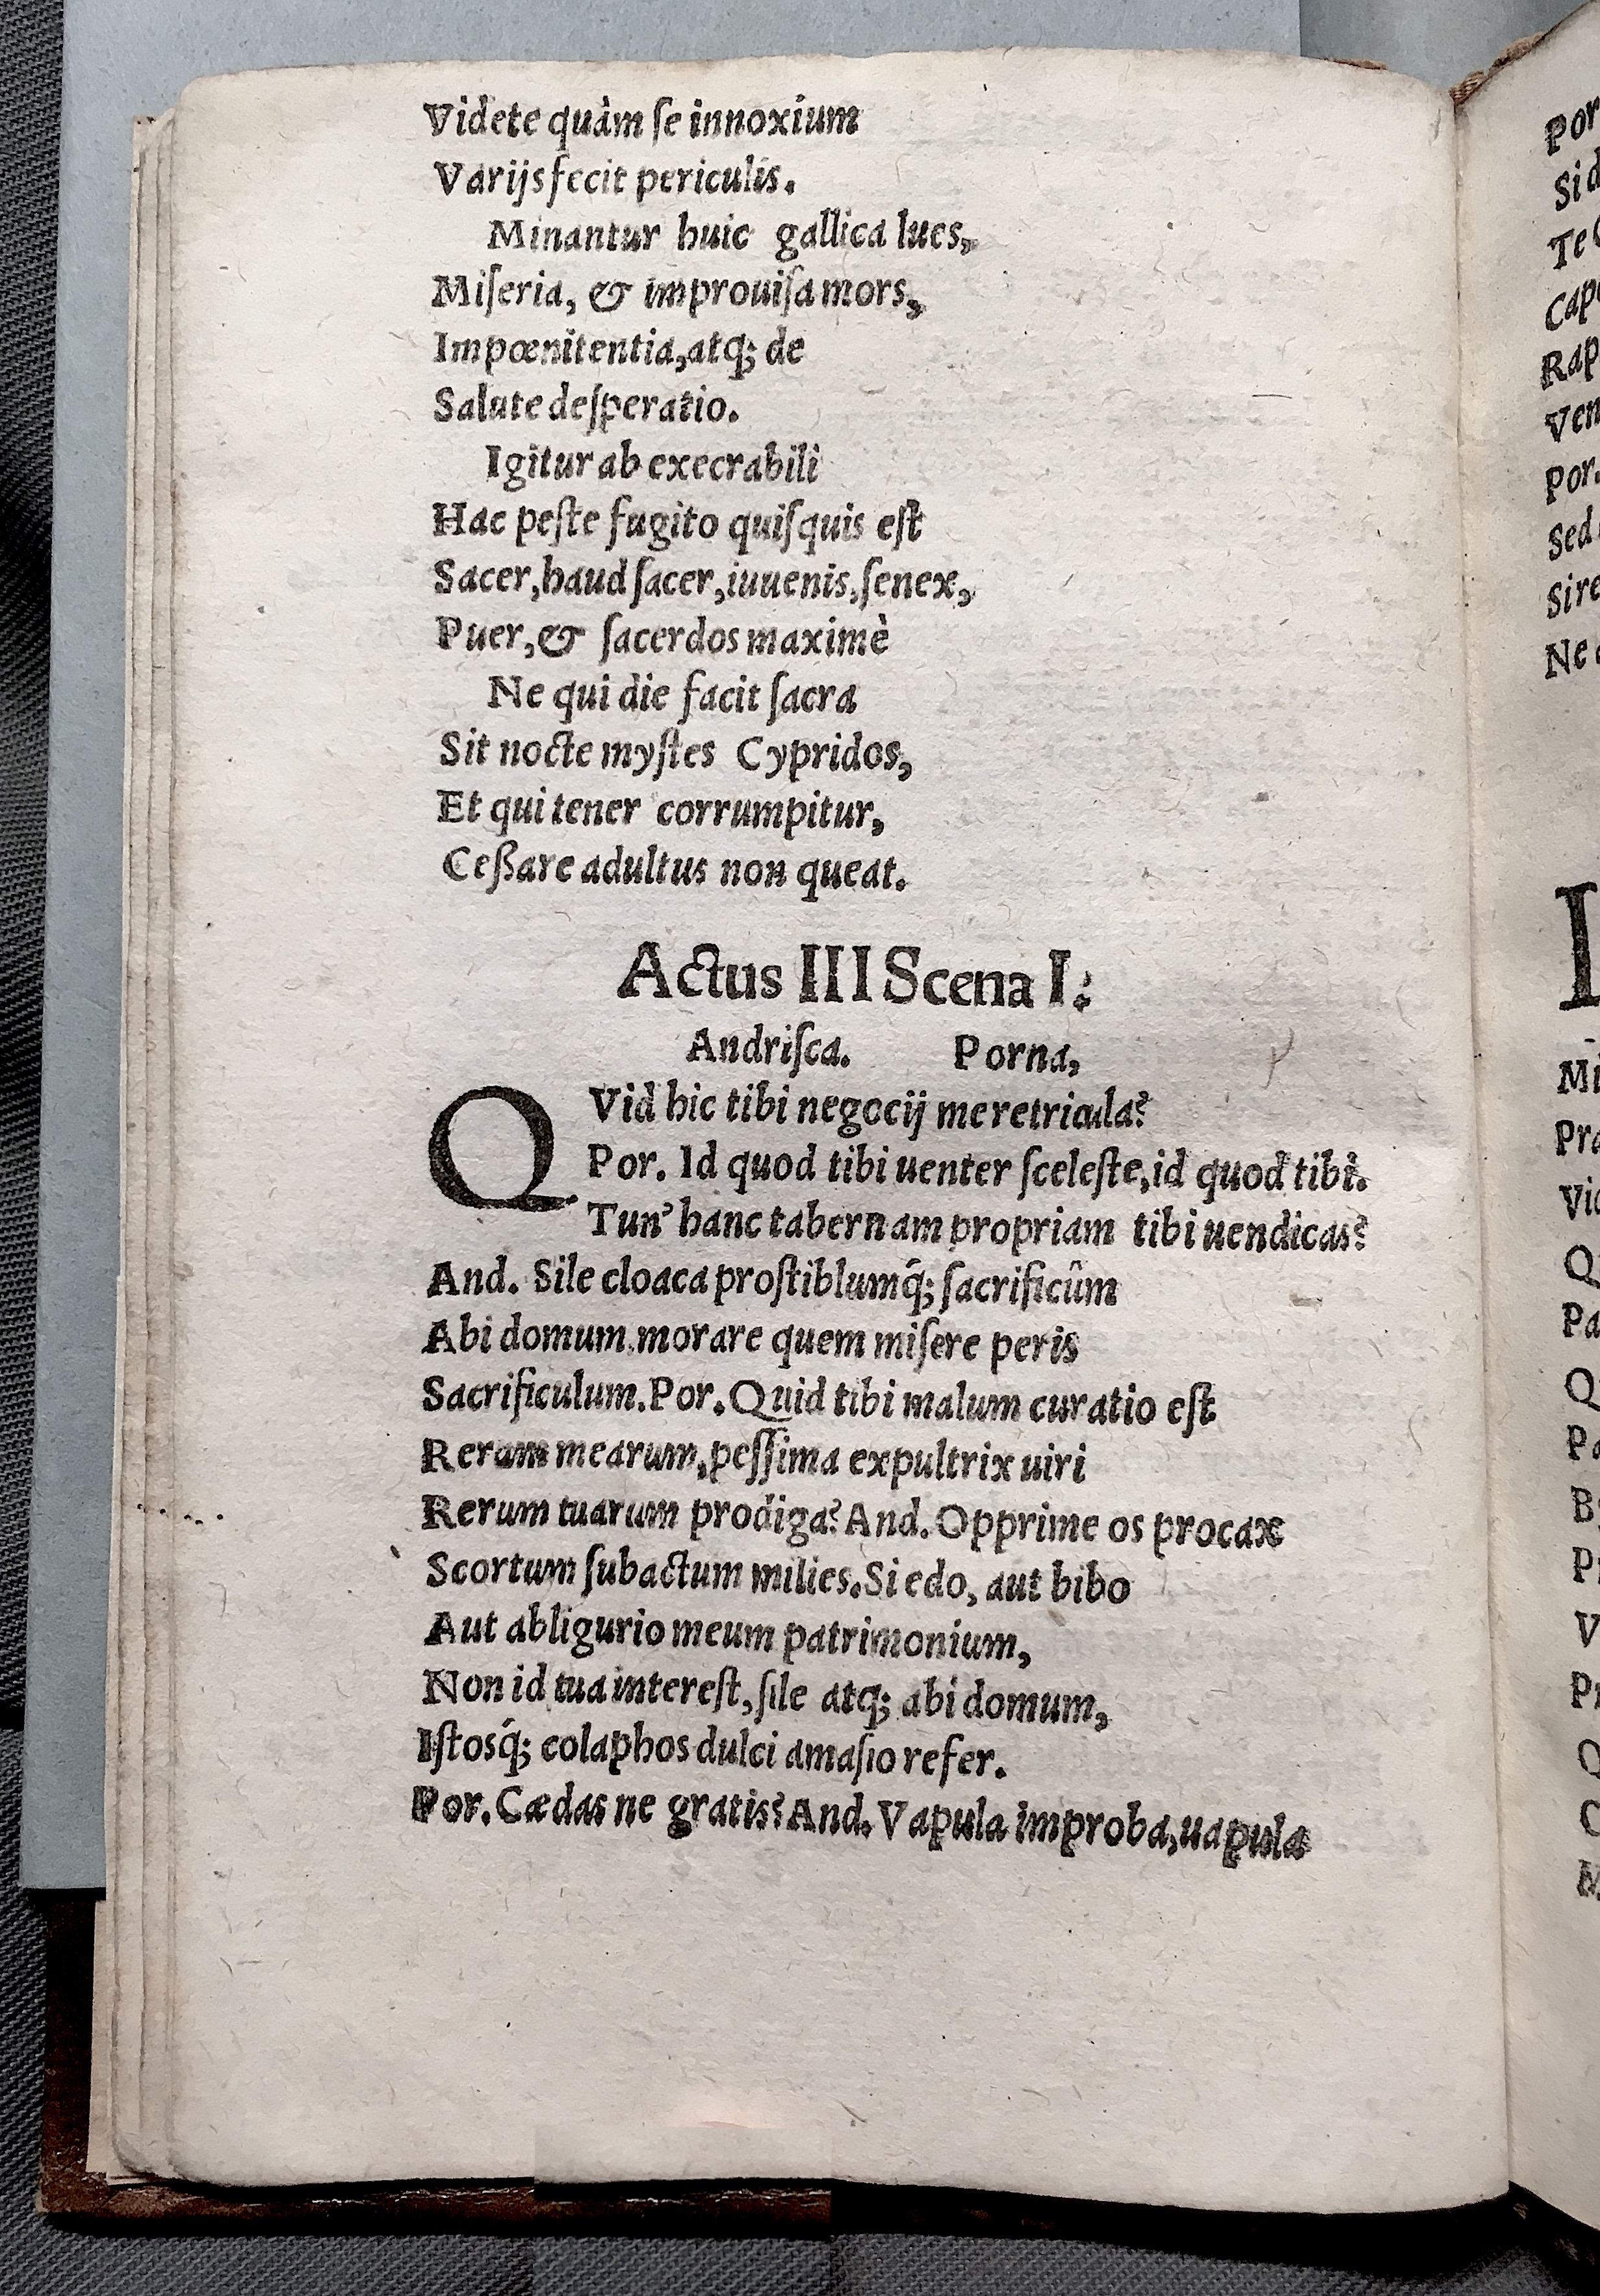 Videte quàm ſe innoxium
Varijs fecit periculis.
Minantur huic gallica lues,
Miſeria, & improuiſa mors,
Impœnitentia, atq; de
Salute deſperatio.
Igitur ab execrabili
Hac peſte fugito quiſquis eſt
Sacer, haud ſacer, iuuenis, ſenex,
Puer, & ſacerdos maximè
Ne qui die facit ſacra
Sit nocte myſtes Cypridos,
Et qui tener corrumpitur,
Ceßare adultus non queat.
Actus III Scena I.
Andriſca. Porna,
QVid hic tibi negocij meretricula?
Por. Id quod tibi uenter ſceleſte, id quod tibi.
Tun' hanc tabernam propriam tibi uendicas?
And. Sile cloaca proſtiblumq́; ſacrificûm
Abi domum, morare quem miſere peris
Sacrificulum. Por. Quid tibi malum curatio eſt
Rerum mearum, peſſima expultrix uiri
Rerum tuarum prodiga? And. Opprime os procax
Scortum ſubactum milies. Si edo, aut bibo
Aut abligurio meum patrimonium,
Non id tua intereſt, ſile atq; abi domum,
Iſtosq́; colaphos dulci amaſio refer.
Por. Cædas ne gratis? And. Vapula improba, uapula
Por
Si d
Te
Cap
Rap
Ven
Por.
Sed
Sire
Ne
I
Mi
Pra
Vi
Q
Pa
Q
Pa
B
Pr
V
Pr
Q
C